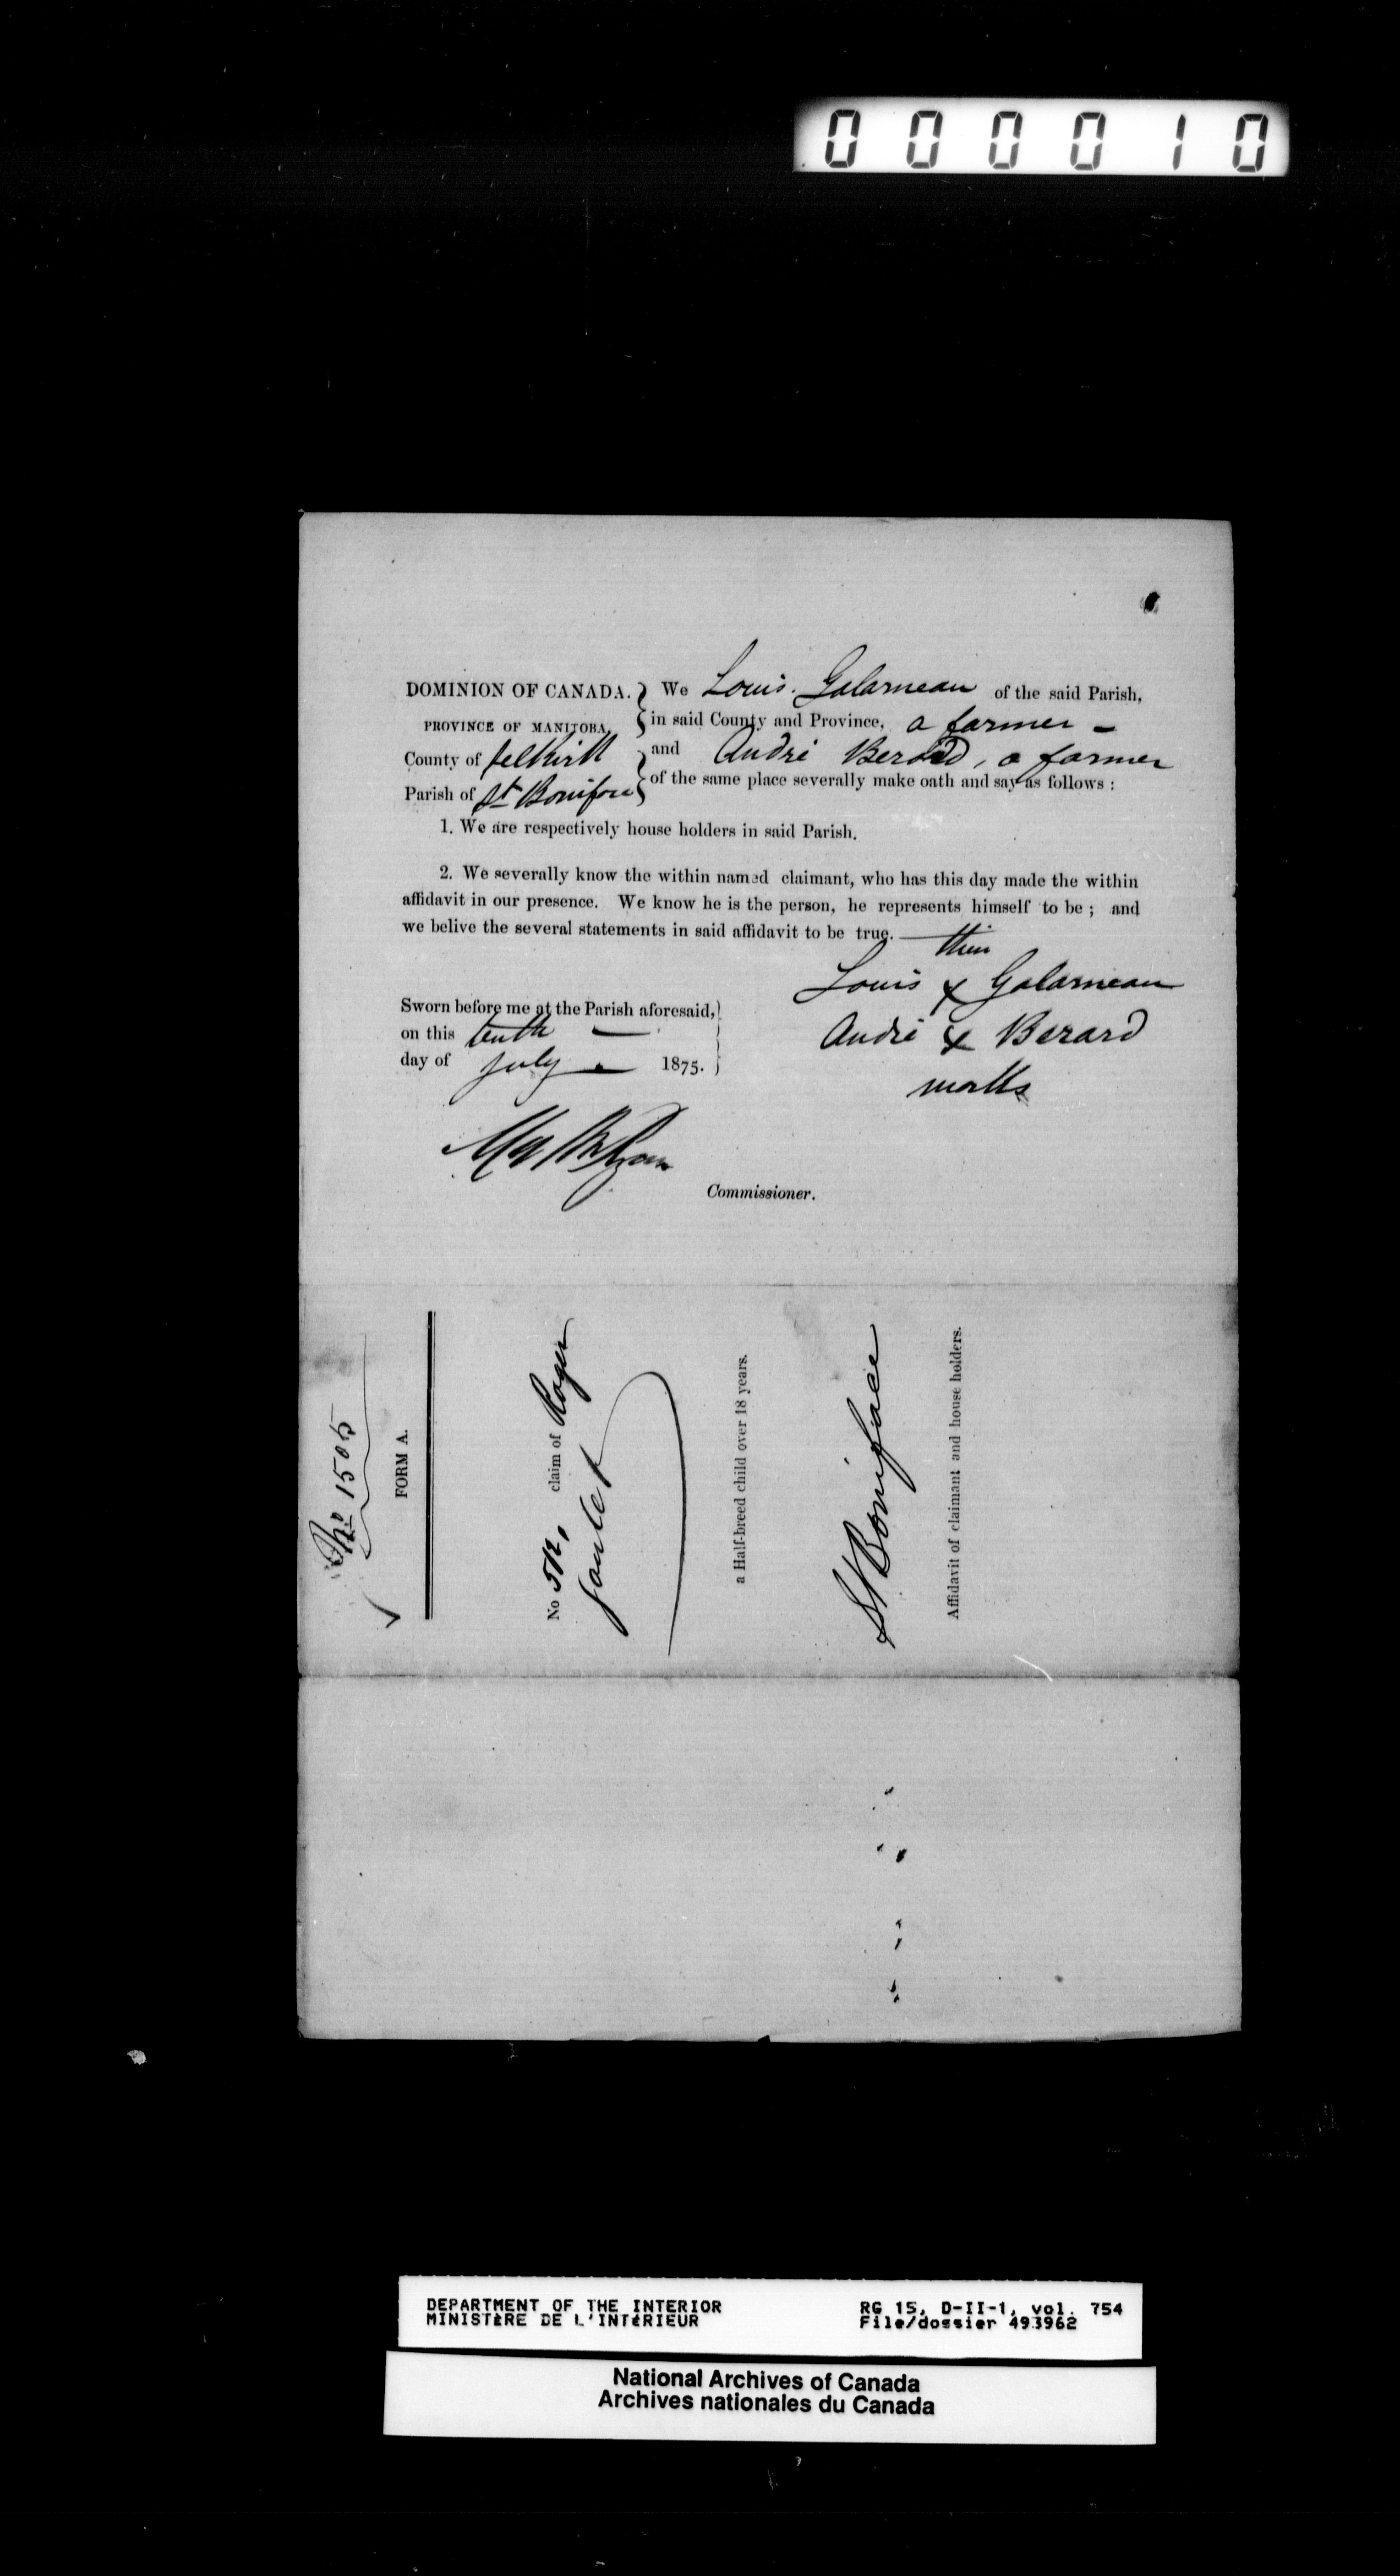 000010
DOMINION OF CANADA. We Louis Galarneau of the said Parish,
PROVINCE OF MANITOBA, in said County and Province, a farmer -
County of Selkirk and André Berard, a farmer
Parish of St Boniface of the same place severally make oath and say as follows :
1. We are respectively house holders in said Parish.
2. We severally know the within named claimant, who has this day made the within
affidavit in our presence. We know he is the person, he represents himself to be ; and
we belive the several statements in said affidavit to be true.
their
Louis x Galarneau
André x Berard
marks
Sworn before me at the Parish aforesaid,
on this tenth
day of July 1875.
Commissioner.
No 1505
FORM A.
No claim of Roger
a Half-breed child over 18 years.
St Boniface
Affidavit of claimant and house holders.
DEPARTMENT OF THE INTERIOR RG 15, D-II-1, vol. 754
MINISTÈRE DE L'INTÉRIEUR File/dossier 493962
National Archives of Canada
Archives nationales du Canada